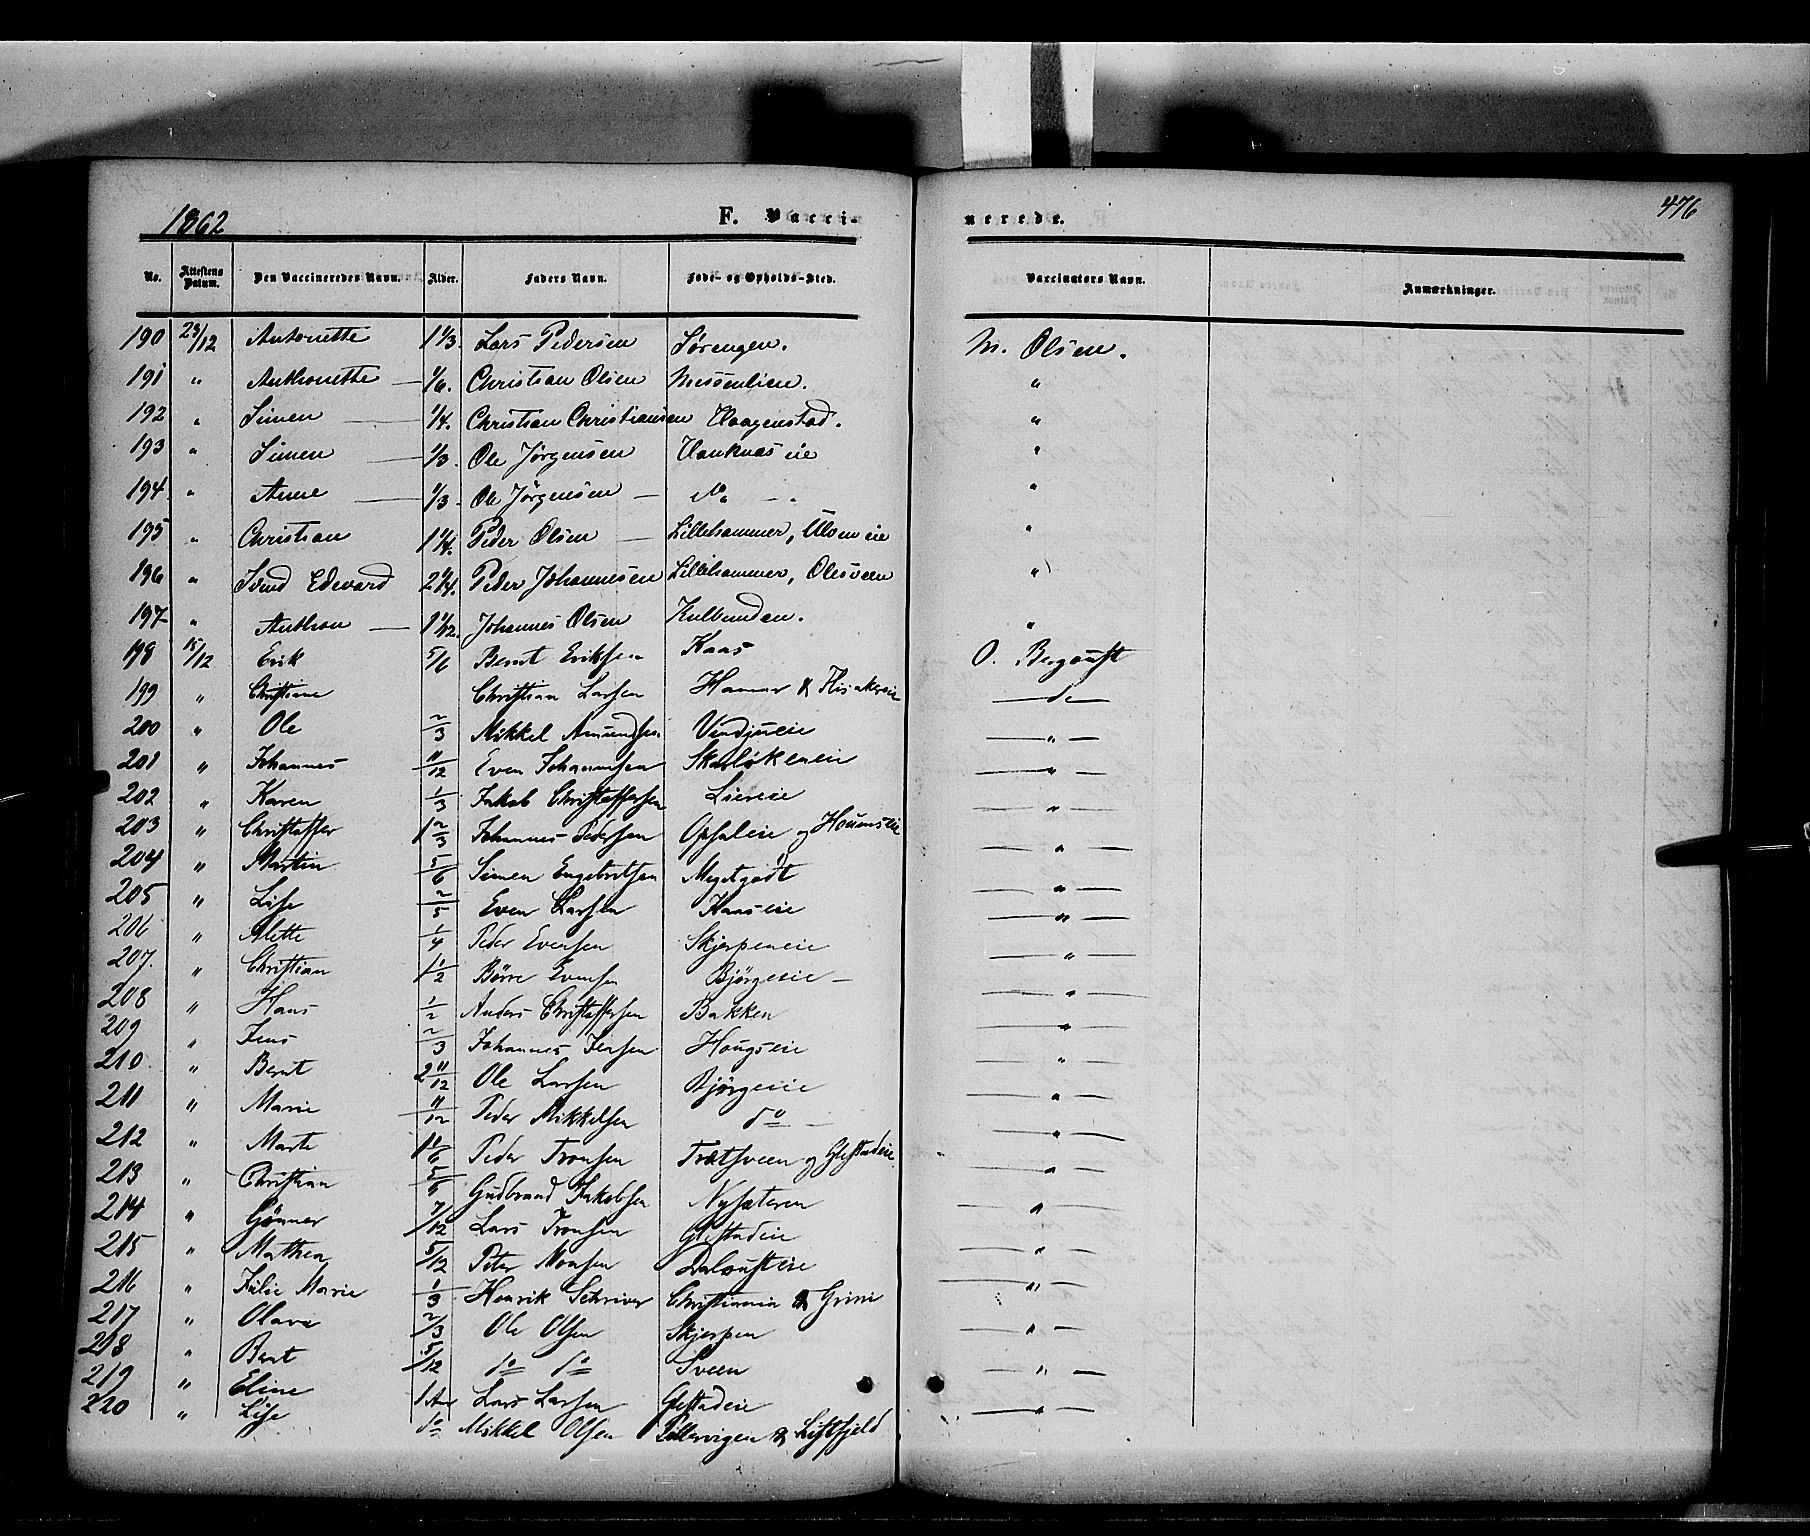 1862 F. Vacci- nerede. 476
No. Attestens Datum. Den Vaccineredes Navn. Alder. Faders Navn. Føde- og Opholds-Sted. Vaccinators Navn. Anmærkninger.
190 23/12 Antonette 1 1/3 Lars Pedersen Sörengen. M. Olsen.
191 " Anthonette — 1/6. Christian Olsen Messenlien. "
192 " Simen — 1/4. Christian Christiansen Haagenstad. "
193 " Simen — 1/3. Ole Jörgensen Hanknæs eie "
194. " Anne — 1/3. Ole Jörgensen — do — "
195 " Christian 1 1/4. Peder Olsen — Lillehammer, Ulven eie "
196 " Svend Edevard 2 1/4. Peder Johannesen Lillehammer, Olesveen "
197 " Anthon — 1 1/12. Johannes Olsen "
198 15/12 Erik 5/6 Bernt Eriksen Kaas O. Bergaust
199 " Christiane Christian Larsen Hamar & — do —
200 " Ole 2/3 Mikkel Amundsen — " —
201 " Johannes 11/12 Even Johannesen — " —
202 " Karen 1/3 Jakob Christoffersen Liereie — " —
203 " Christoffer 1 2/3 Johannes Pedersen Opsaleie og — " —
204 " Martin 5/6 Simen Engebretsen — " —
205 " Lise 2/5 Even Larsen Kaaseie — " —
206 " Alette 1/4 Peder Evensen Skjerpeneie — " —
207. " Christian 1 1/2 Börre Evensen Bjørgeeie — — " —
208 " Hans 1/2 Anders Christoffersen Bakken — " —
209 " Jens 2/3 Johannes Jensen Hougseie — " —
210 " Bernt 2 11/12 Ole Larsen Bjørgeeie — " —
211 " Marie 11/12 Peder Mikkelsen do — — " —
212 " Marte 1 1/6 Peder Tronsen Trætsveen og Glestadeie — " —
213 " Christian 5/6 Gudbrand Jakobsen Nysæteren — " —
214 " Gunner 7/12 Lars Tronsen Glestadeie — " —
215 " Mathea 5/12 Peter Monsen Dalousteie — " —
216 " Julie Marie 1/3 Henrik Schriver Christiania & Grini — " —
217 " Olava 2/3 Ole Olsen Skjerpen — " —
218 " Bernt 5/12 do do Sveen — " —
219 " Eline 1 Aar Lars Larsen Glestadeie — " —
220 " Lise do Mikkel Olsen Lillevigen & Liftfjeld